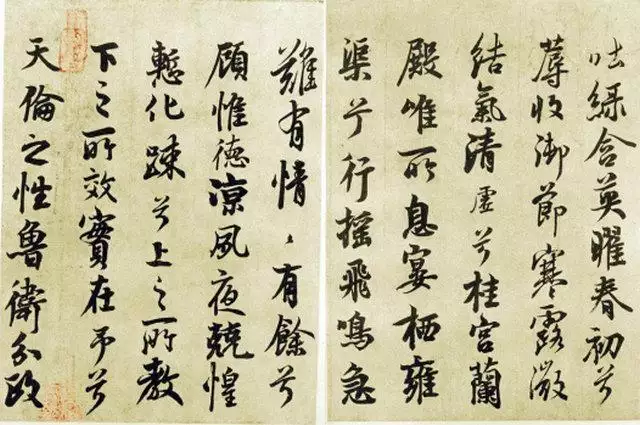 吐綠含英曜春初兮
蓐收御節寒露微
結氣清虛兮桂宮蘭
殿唯所息宴栖雍
渠兮行搖飛鳴急
難有情〻有餘兮
顧惟德涼夙夜兢惶
慙化踈兮上之所教
下之所效實在予兮
天倫之性魯衛分政